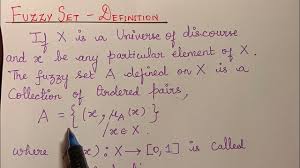 FUZZY SET - DEFINITION
If X is a Universe of discourse
and x be any particular element of X.
The fuzzy set A defined on X is a
Collection of Ordered pairs,
A = { (x, μA(x) }
/x ∈ X.
where (x) : X → [0, 1] is called